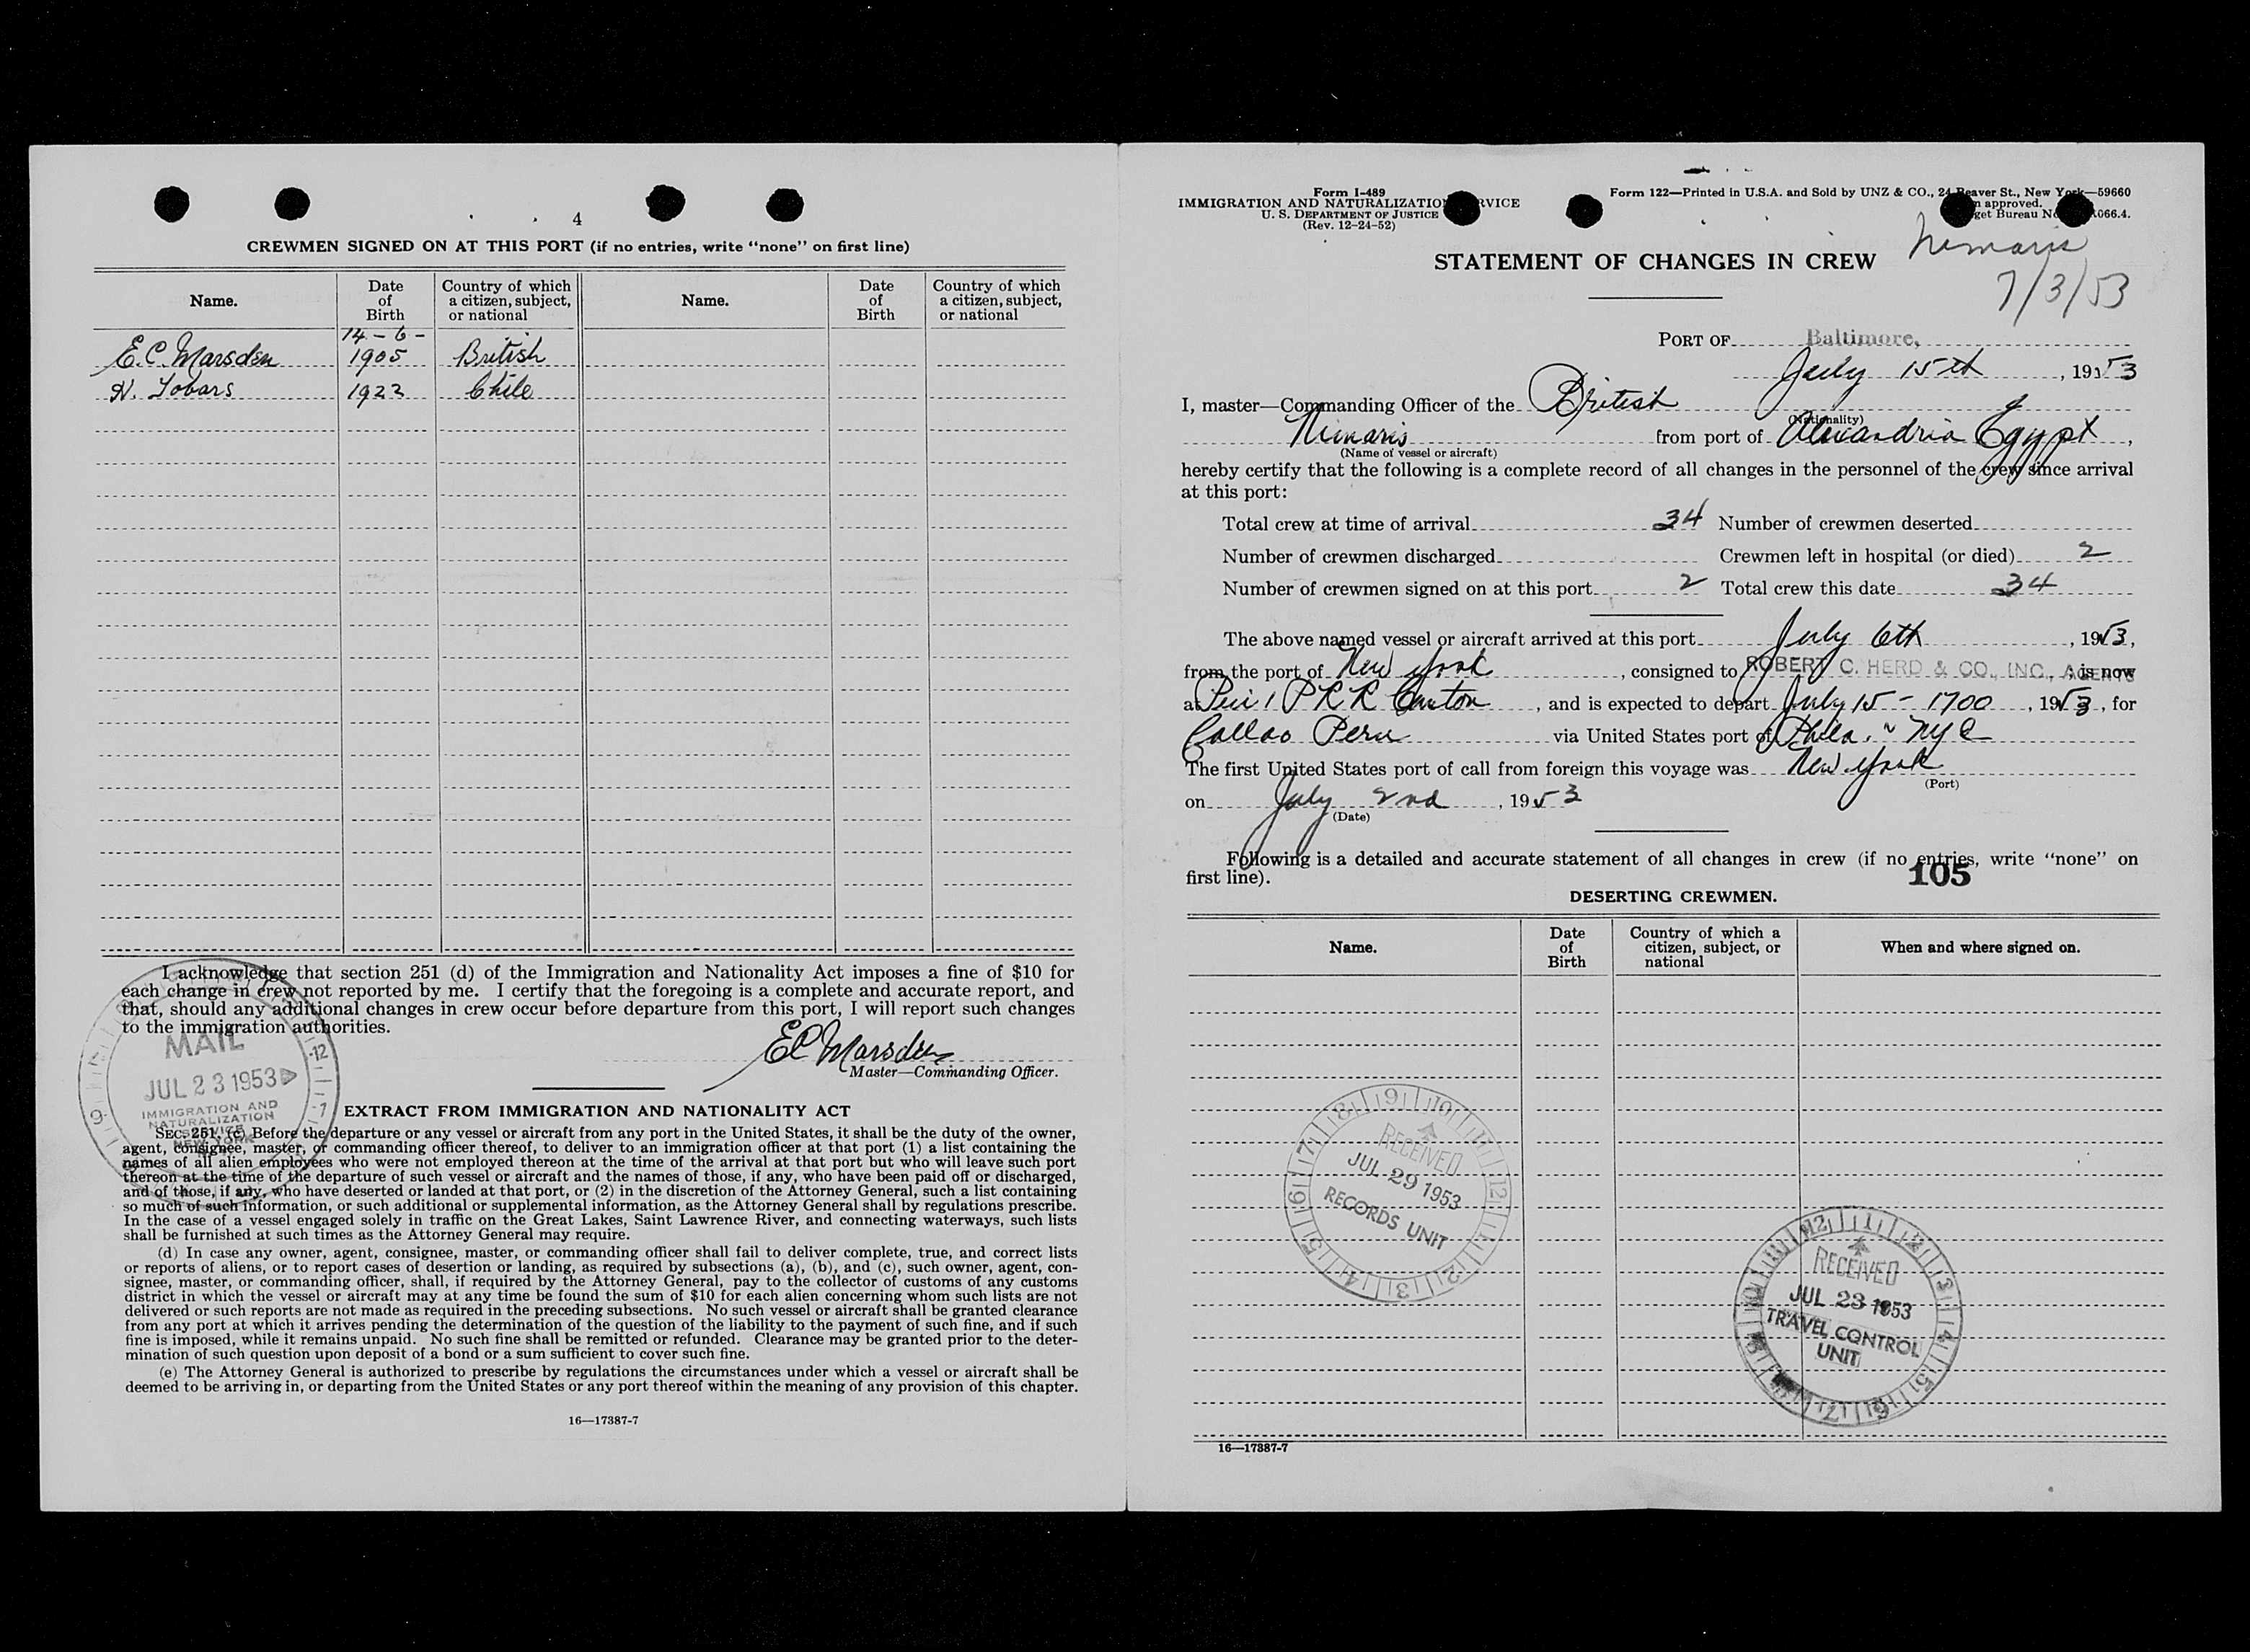 4
CREWMEN SIGNED ON AT THIS PORT (if no entries, write "none" on first line)
Name. Date of Birth Country of which a citizen, subject, or national Name. Date of Birth Country of which a citizen, subject, or national
E.C. Marsden 14-6-1905 British
H. Tobars 1922 Chile
I acknowledge that section 251 (d) of the Immigration and Nationality Act imposes a fine of $10 for
each change in crew not reported by me. I certify that the foregoing is a complete and accurate report, and
that, should any additional changes in crew occur before departure from this port, I will report such changes
to the immigration authorities.
EC Marsden
Master—Commanding Officer.
MAIL
JUL 23 1953
IMMIGRATION AND
NATURALIZATION
SERVICE
NEW YORK
EXTRACT FROM IMMIGRATION AND NATIONALITY ACT
SEC. 251. (c) Before the departure or any vessel or aircraft from any port in the United States, it shall be the duty of the owner,
agent, consignee, master, or commanding officer thereof, to deliver to an immigration officer at that port (1) a list containing the
names of all alien employees who were not employed thereon at the time of the arrival at that port but who will leave such port
thereon at the time of the departure of such vessel or aircraft and the names of those, if any, who have been paid off or discharged,
and of those, if any, who have deserted or landed at that port, or (2) in the discretion of the Attorney General, such a list containing
so much of such information, or such additional or supplemental information, as the Attorney General shall by regulations prescribe.
In the case of a vessel engaged solely in traffic on the Great Lakes, Saint Lawrence River, and connecting waterways, such lists
shall be furnished at such times as the Attorney General may require.
(d) In case any owner, agent, consignee, master, or commanding officer shall fail to deliver complete, true, and correct lists
or reports of aliens, or to report cases of desertion or landing, as required by subsections (a), (b), and (c), such owner, agent, con-
signee, master, or commanding officer, shall, if required by the Attorney General, pay to the collector of customs of any customs
district in which the vessel or aircraft may at any time be found the sum of $10 for each alien concerning whom such lists are not
delivered or such reports are not made as required in the preceding subsections. No such vessel or aircraft shall be granted clearance
from any port at which it arrives pending the determination of the question of the liability to the payment of such fine, and if such
fine is imposed, while it remains unpaid. No such fine shall be remitted or refunded. Clearance may be granted prior to the deter-
mination of such question upon deposit of a bond or a sum sufficient to cover such fine.
(e) The Attorney General is authorized to prescribe by regulations the circumstances under which a vessel or aircraft shall be
deemed to be arriving in, or departing from the United States or any port thereof within the meaning of any provision of this chapter.
16—17387-7
Form I-489
IMMIGRATION AND NATURALIZATION
U. S. DEPARTMENT OF JUSTICE
(Rev. 12-24-52)
Form 122—Printed in U.S.A. and Sold by UNZ & CO., 24 Beaver St., New York—59660
approved.
Bureau
Nimaris
7/3/53
STATEMENT OF CHANGES IN CREW
PORT OF Baltimore,
July 15th, 1953
I, master—Commanding Officer of the British
(Nationality)
Nimaris from port of Alexandria Egypt,
(Name of vessel or aircraft)
hereby certify that the following is a complete record of all changes in the personnel of the crew since arrival
at this port:
Total crew at time of arrival 34 Number of crewmen deserted
Number of crewmen discharged Crewmen left in hospital (or died) 2
Number of crewmen signed on at this port 2 Total crew this date 34
The above named vessel or aircraft arrived at this port July 6th, 1953,
from the port of New York, consigned to ROBERT C. HERD & CO., INC., AGENTS is now
at Pier 1 PRR Canton, and is expected to depart July 15-1700, 1953, for
Callao Peru via United States port of Phila. " NYC
The first United States port of call from foreign this voyage was New York
(Port)
on July 2nd, 1953
(Date)
Following is a detailed and accurate statement of all changes in crew (if no entries, write "none" on
first line).
105
DESERTING CREWMEN.
Name. Date of Birth Country of which a citizen, subject, or national When and where signed on.
RECEIVED
JUL 29 1953
RECORDS UNIT
RECEIVED
JUL 23 1953
TRAVEL CONTROL
UNIT
16—17387-7